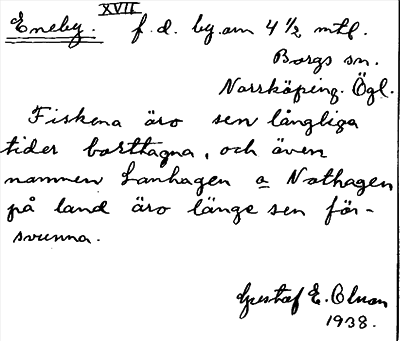 XVII
Eneby. f. d. by. om 4 1/2 mtl.
Borgs sn.
Norrköping. Ögl.
Fiskena äro sen långliga
tider borttagna, och även
namnen Lanhagen o Nothagen
på land äro länge sen för-
svunna.
Gustaf E. Olson
1938.